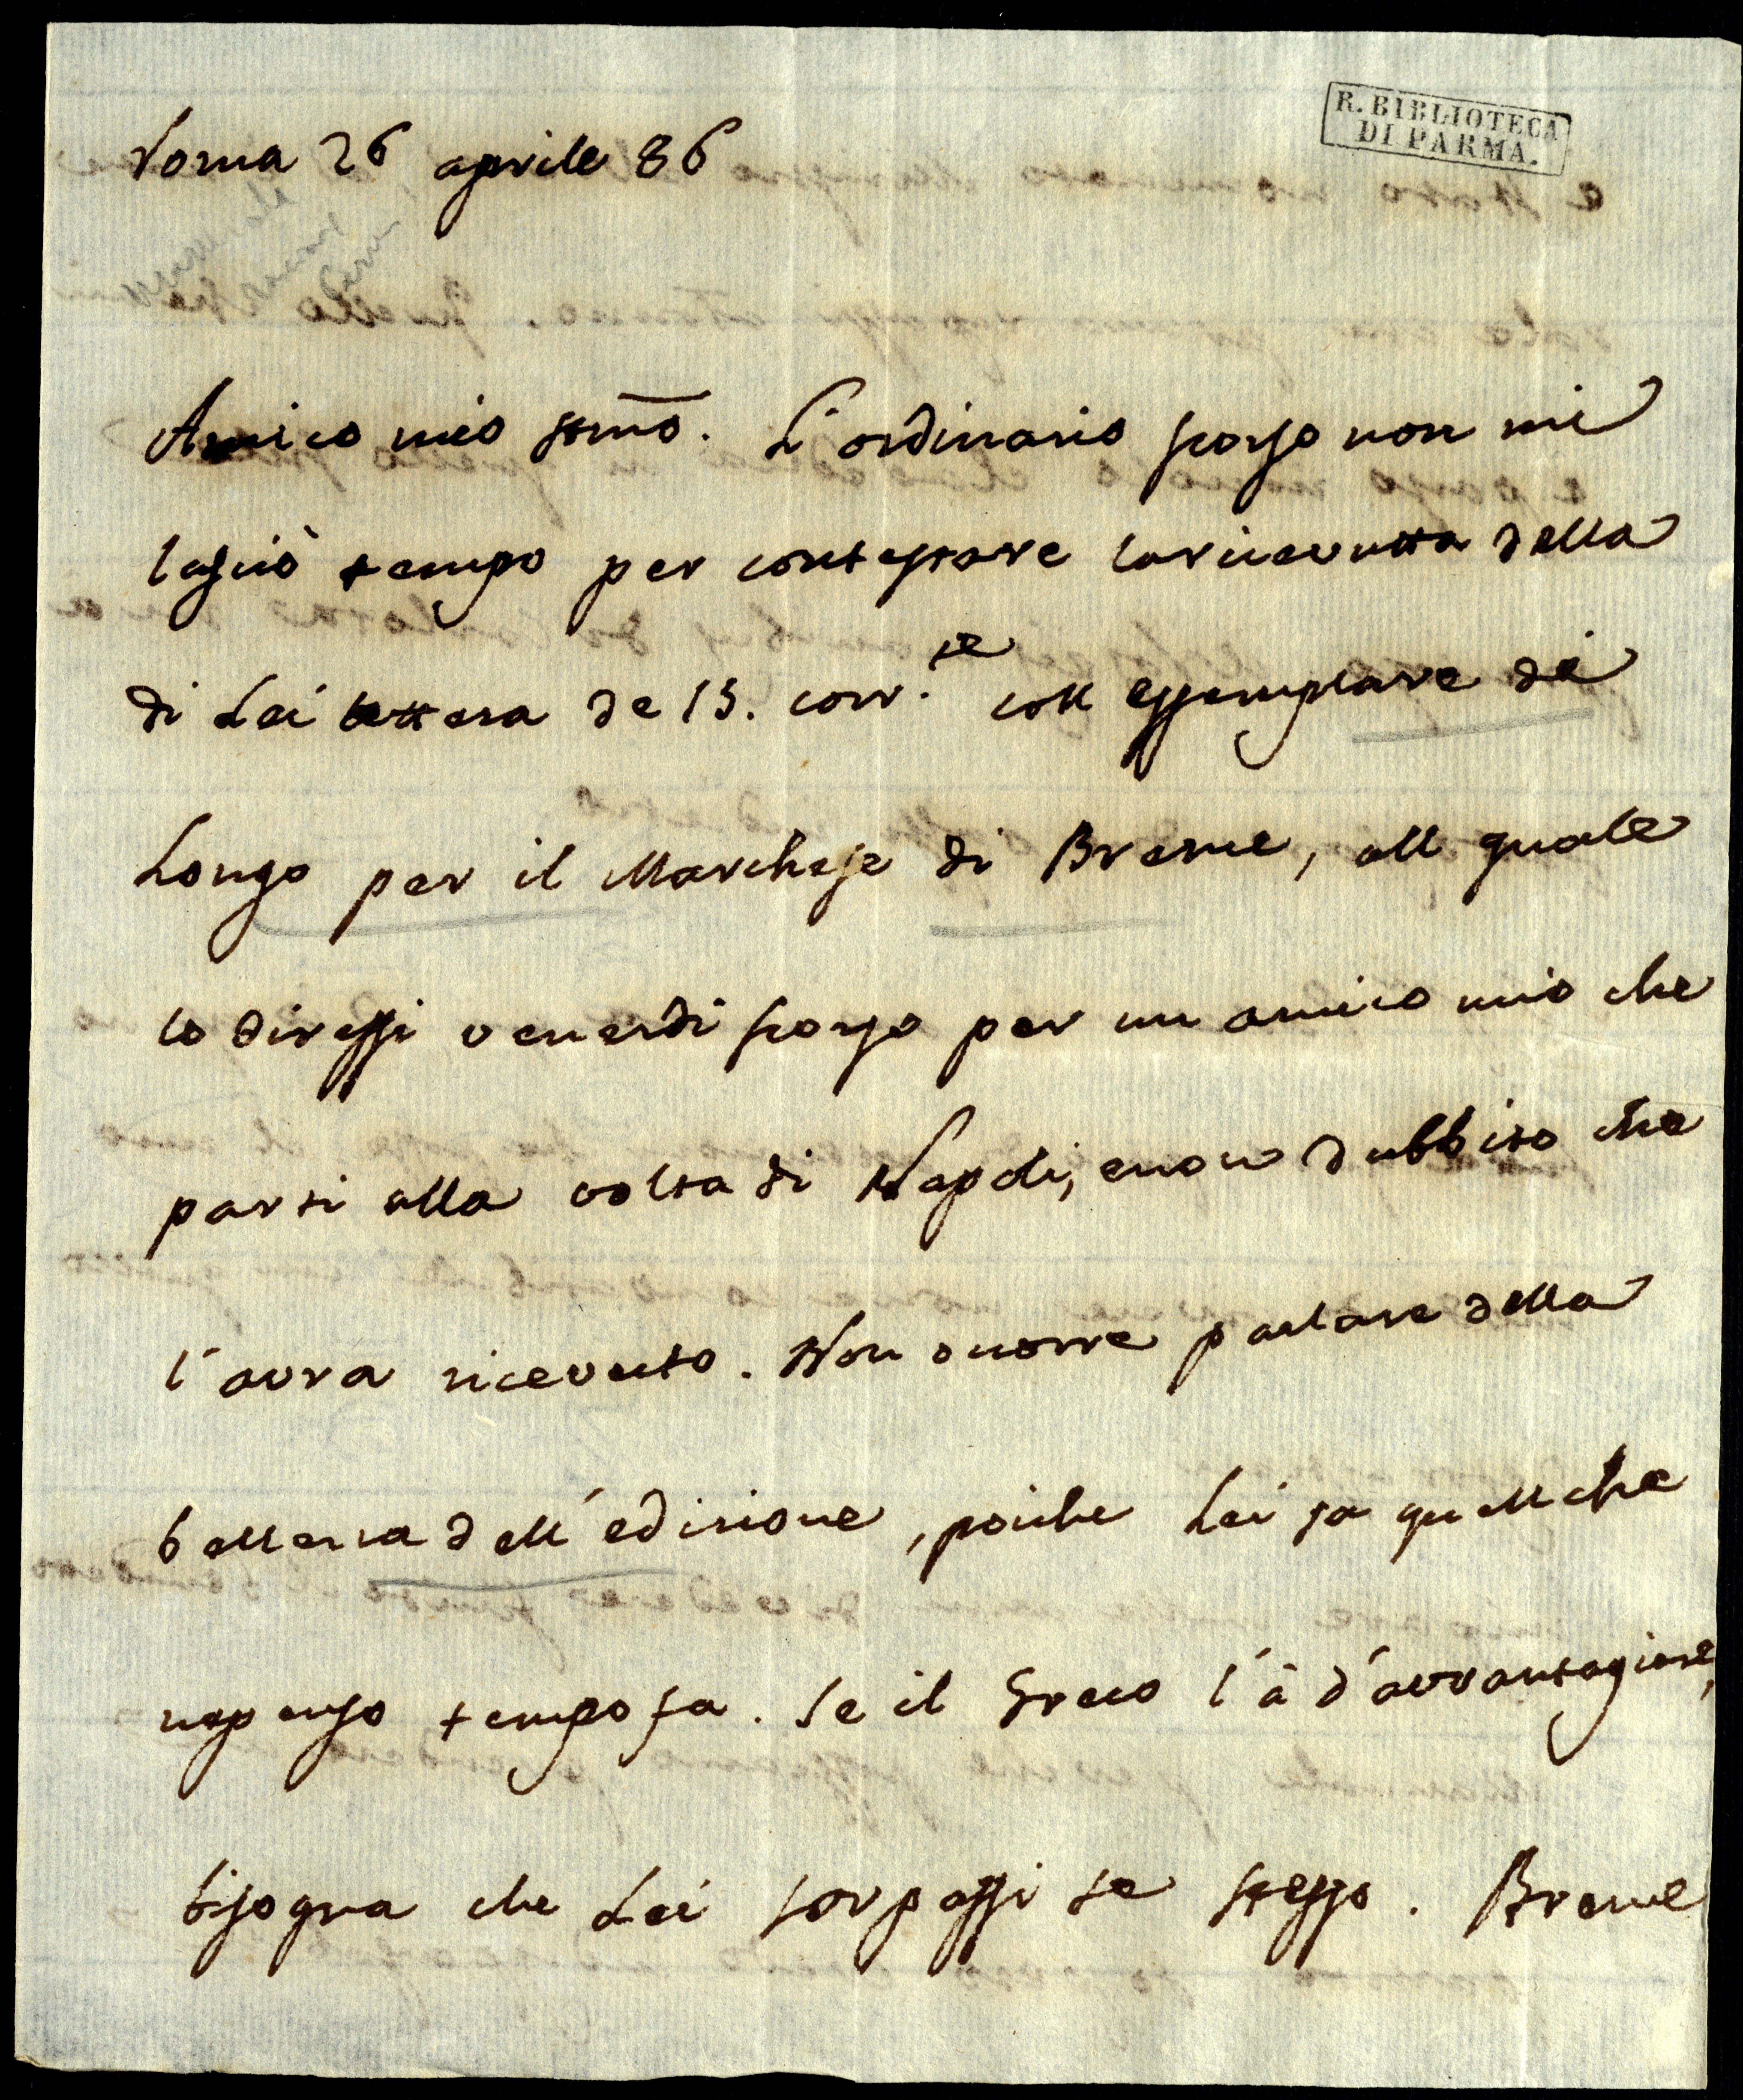 R. BIBLIOTECA
DI PARMA.
Roma 26 aprile 86
Amico mio stmo. L'ordinario scorso non mi
lasciò tempo per contestare la ricevutta della
di Lei lettera de 15. corr.te coll essemplare di
Longo per il Marchese di Breme, all quale
lo diressi venerdi scorso per un amico mio che
parti alla volta di Napoli, e non dubbito che
l'avra ricevuto. Non ocorre parlare della
bellezza dell'edizione, poiche Lei sa quell che
ne penso tempo fa. Se il Greco l'à d'avvantagiare,
bisogna che Lei sorpassi se stesso. Breme